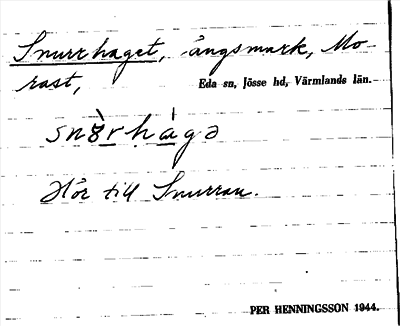 Snurrhaget, ängsmark, Mo-
rast,
Eda sn, Jösse hd, Värmlands län.
snɤ̀rhàgə
Hör till Snurran.
PER HENNINGSSON 1944.